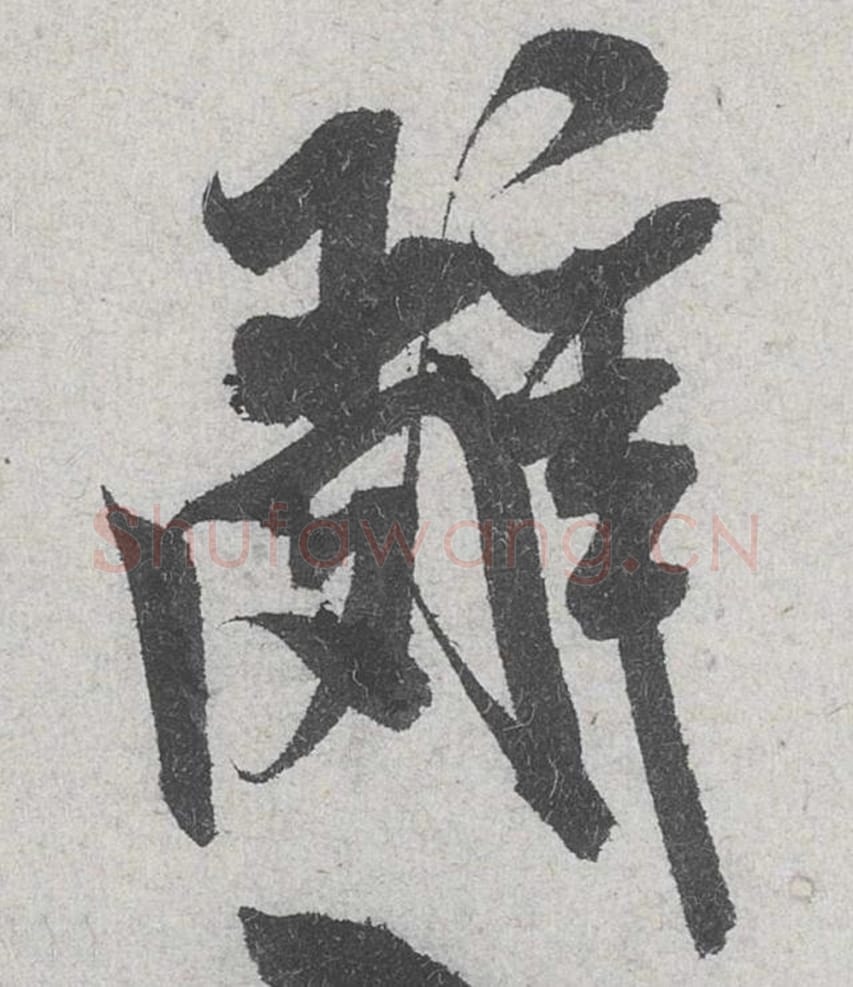 辭
Shufawang.CN